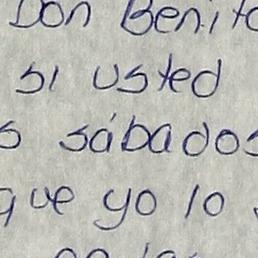 Don Benito
si usted
s sábados
que yo lo